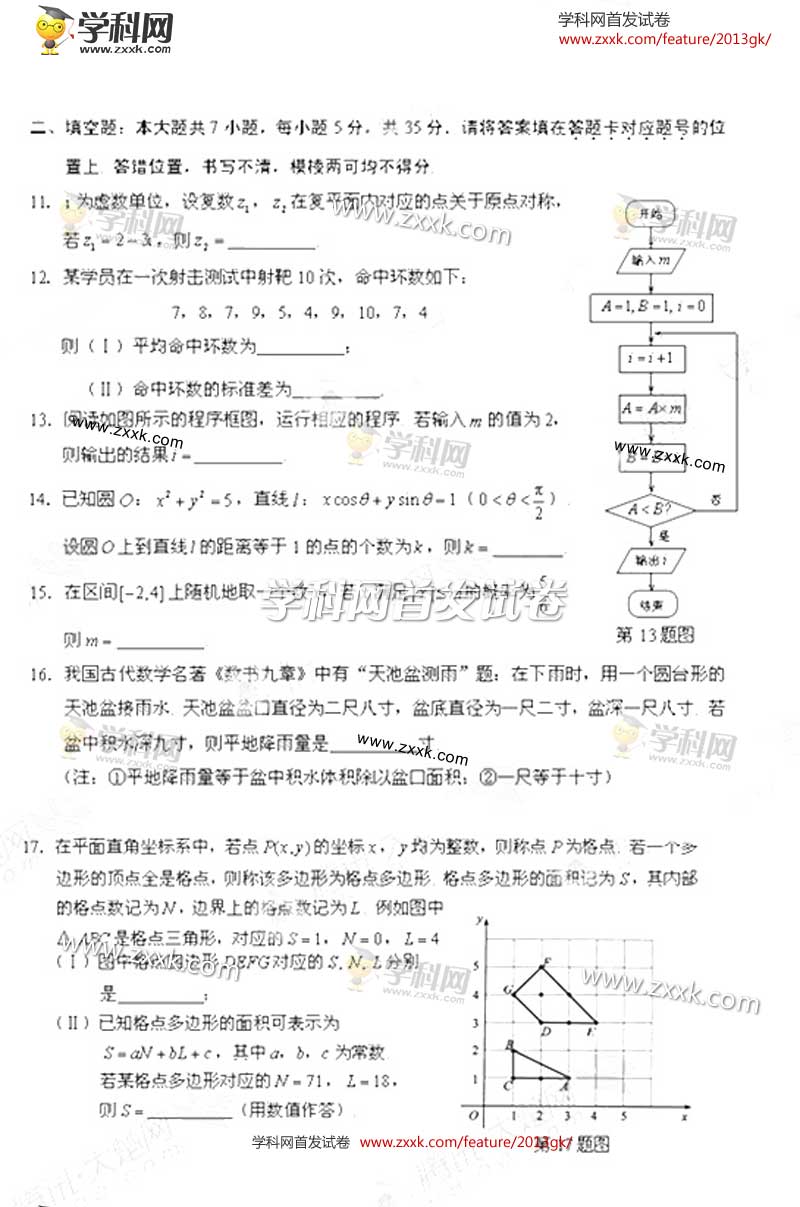 学科网
www.zxxk.com
学科网首发试卷
www.zxxk.com/feature/2013gk/
二、填空题：本大题共7小题，每小题5分，共35分．请将答案填在答题卡对应题号的位
置上. 答错位置，书写不清，模棱两可均不得分.
11. i为虚数单位，设复数z₁，z₂在复平面内对应的点关于原点对称，
若z₁=2-3i，则z₂=________.
12. 某学员在一次射击测试中射靶10次，命中环数如下：
7，8，7，9，5，4，9，10，7，4
则（Ⅰ）平均命中环数为________；
（Ⅱ）命中环数的标准差为________.
13. 阅读如图所示的程序框图，运行相应的程序. 若输入m的值为2，
则输出的结果i=________.
14. 已知圆O：x²+y²=5，直线l：xcosθ+ysinθ=1（0<θ<π/2）.
设圆O上到直线l的距离等于1的点的个数为k，则k=________.
15. 在区间[-2,4]上随机地取一个数 的概率为5/6
则m=________.
16. 我国古代数学名著《数书九章》中有“天池盆测雨”题：在下雨时，用一个圆台形的
天池盆接雨水. 天池盆盆口直径为二尺八寸，盆底直径为一尺二寸，盆深一尺八寸. 若
盆中积水深九寸，则平地降雨量是________寸.
（注：①平地降雨量等于盆中积水体积除以盆口面积；②一尺等于十寸）
17. 在平面直角坐标系中，若点P(x,y)的坐标x，y均为整数，则称点P为格点. 若一个多
边形的顶点全是格点，则称该多边形为格点多边形. 格点多边形的面积记为S，其内部
的格点数记为N，边界上的格点数记为L. 例如图中
△ABC是格点三角形，对应的S=1，N=0，L=4.
（Ⅰ）图中格点四边形DEFG对应的S, N, L分别
是________；
（Ⅱ）已知格点多边形的面积可表示为
S=aN+bL+c，其中a，b，c为常数.
若某格点多边形对应的N=71，L=18，
则S=________（用数值作答）.
开始
输入m
A=1,B=1,i=0
i=i+1
A=A×m
A<B?
否
是
输出i
结束
第13题图
y
5
4
3
2
1
O
1 2 3 4 5
x
F
G
D
E
B
C
A
第17题图
学科网首发试卷
www.zxxk.com/feature/2013gk/